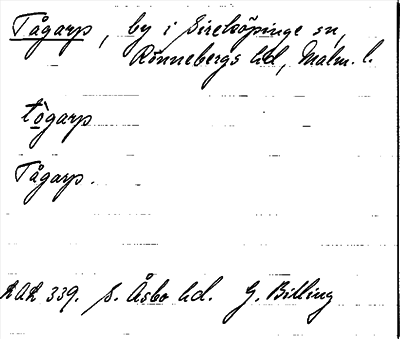 Tågarp, by i Sireköpinge sn,
Rönnebergs hd, Malm. l.
tògarp
Tågarp.
RAÄ 339. S. Åsbo hd. G. Billing